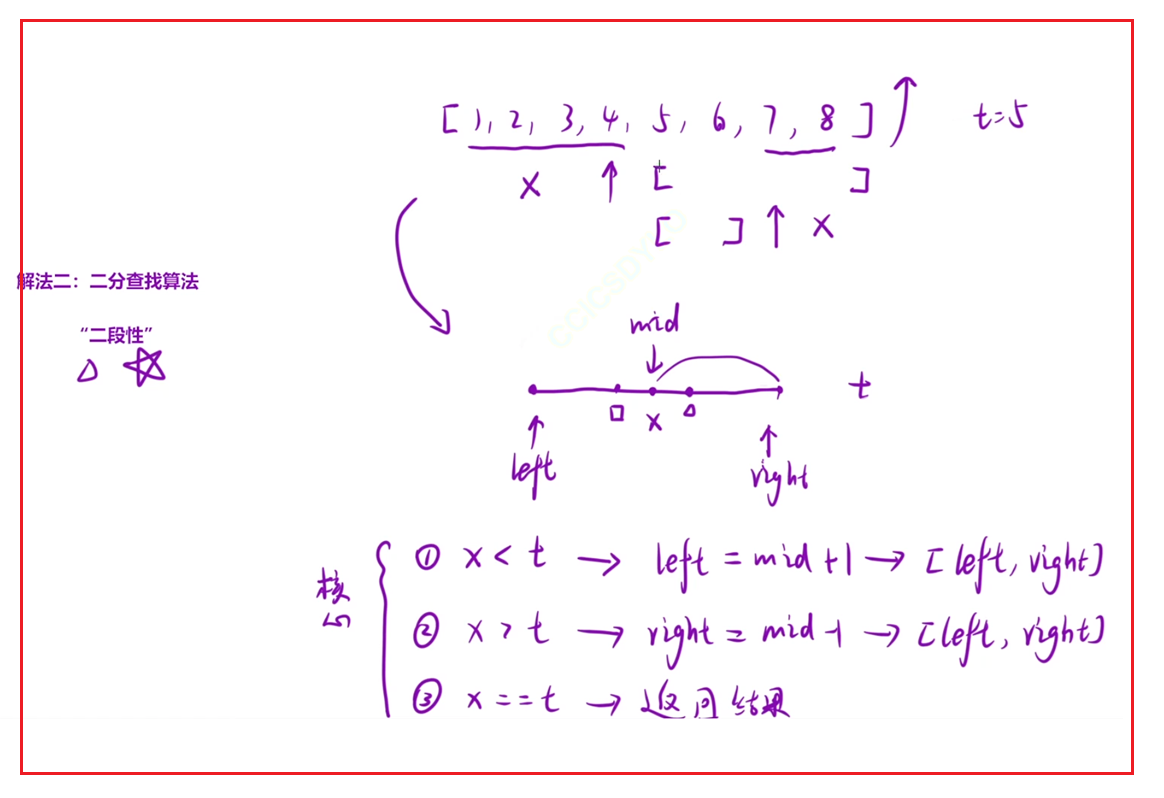 [ 1, 2, 3, 4, 5, 6, 7, 8 ] t=5
x [ ]
[ ] x
解法二：二分查找算法
“二段性”
mid
t
x
left
right
核心
① x < t → left = mid +1 → [left, right]
② x > t → right = mid -1 → [left, right]
③ x == t → 返回结果